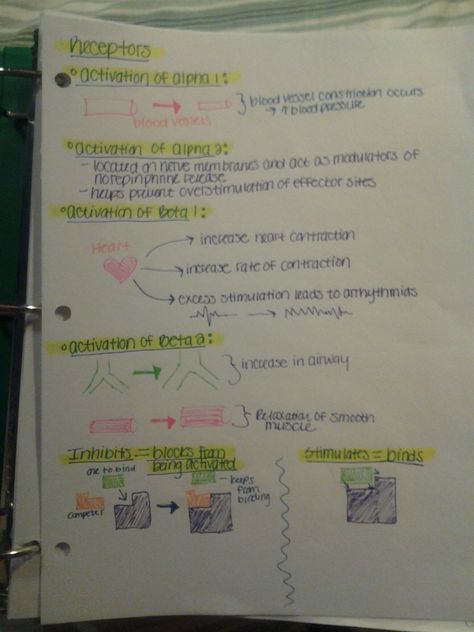 Receptors
• Activation of alpha 1:
blood vessels
blood vessel constriction occurs
→ ↑ blood pressure
• Activation of alpha 2:
- located on nerve membranes and act as modulators of
norepinphrine release
- helps prevent overstimulation of effector sites
• Activation of Beta 1:
Heart
→ increase heart contraction
→ increase rate of contraction
→ excess stimulation leads to arrhythmias
• Activation of Beta 2:
increase in airway
Relaxation of smooth
muscle
Inhibits = blocks from
being activated
one to bind
competer
- keeps
from
binding
Stimulates = binds